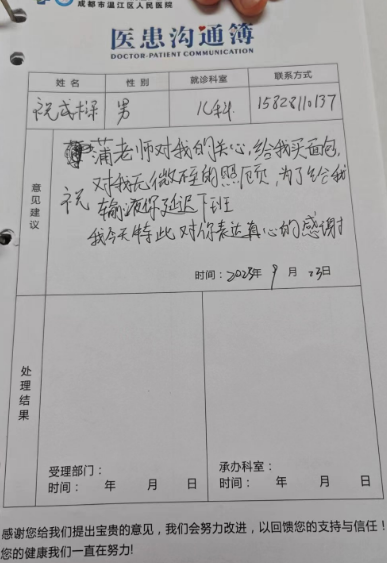 成都市温江区人民医院
医患沟通簿
DOCTOR-PATIENT COMMUNICATION
姓名 性别 就诊科室 联系方式
祝成 男 儿科 15828110137
意见建议
蒲老师对我的关心,给我买面包,
对我无微不至的照顾,为了给我
祝
输液你延迟下班
我今天特此对你表达真心的感谢
时间:2025年9月23日
处理结果
受理部门:
时间: 年 月 日
承办科室:
时间: 年 月 日
感谢您给我们提出宝贵的意见,我们会努力改进,以回馈您的支持与信任!
您的健康我们一直在努力!